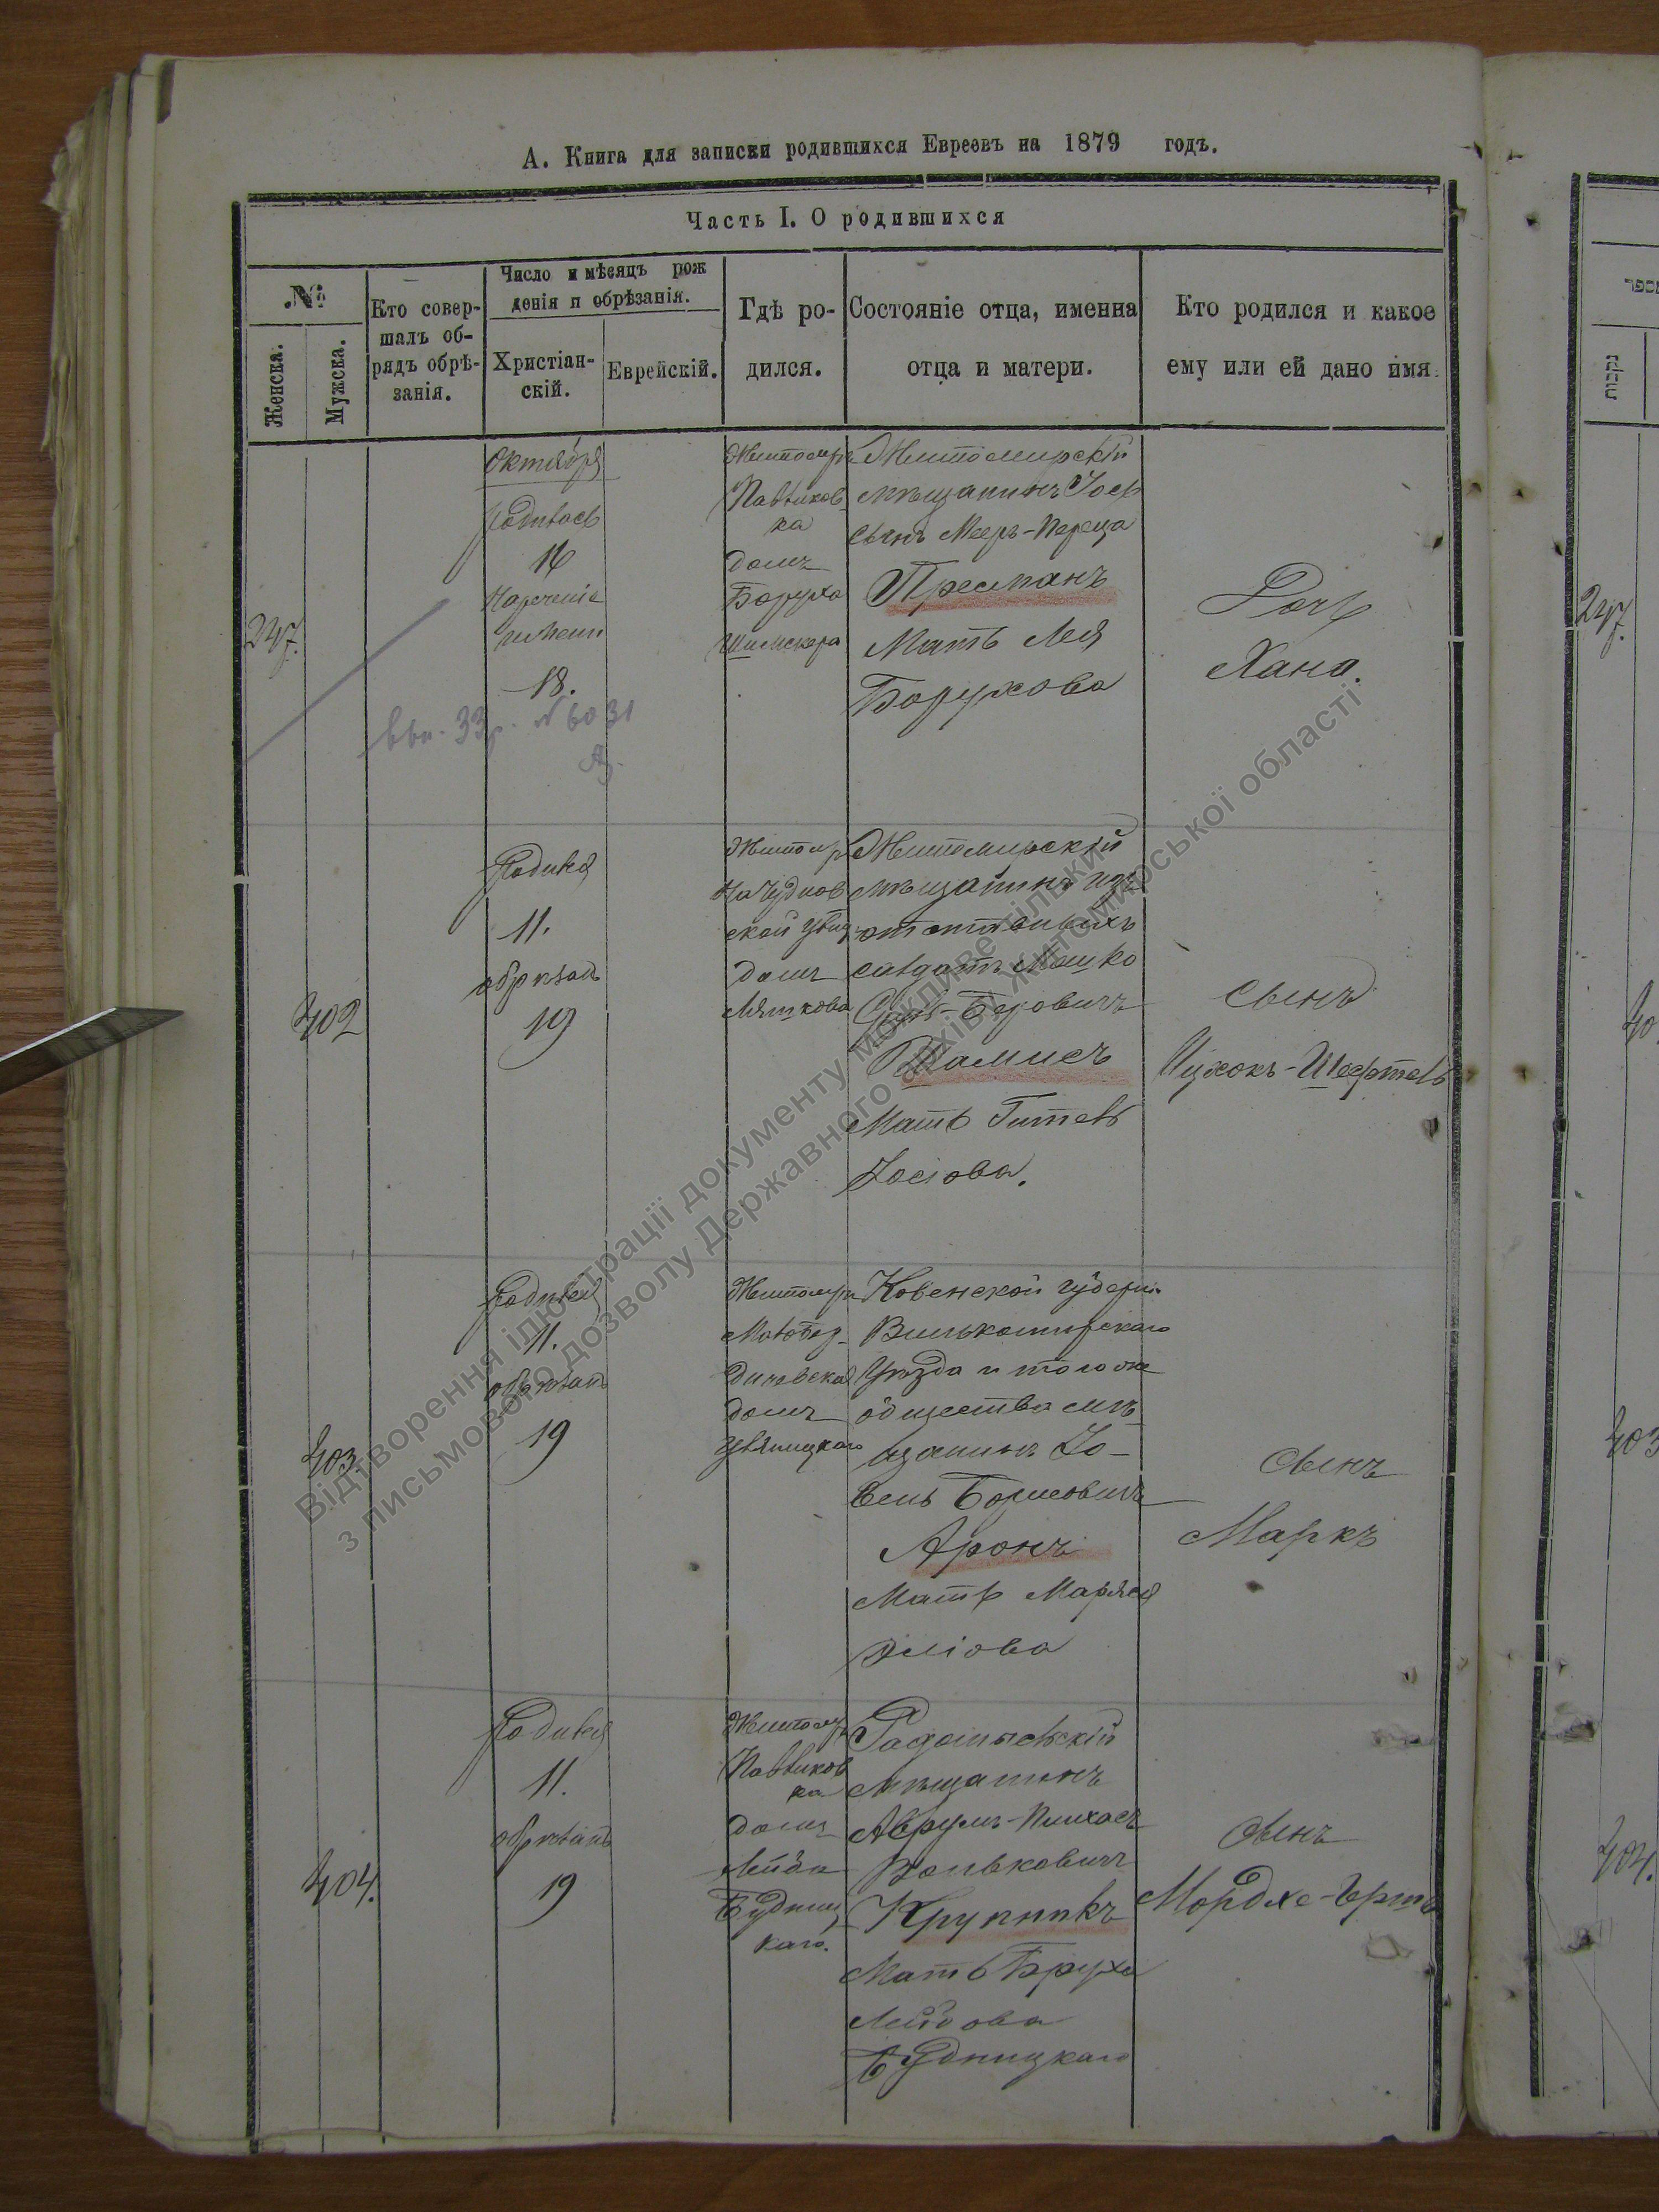 А. Книга для записки родившихся Евреевъ на 1879 годъ.
Часть I. О родившихся
№
Женска.
Мужска.
Кто совер-
шалъ об-
рядъ обрѣ-
занія.
Число и мѣсяцъ рож
денія и обрѣзанія.
Христіан-
скій.
Еврейскій.
Гдѣ ро-
дился.
Состояніе отца, именна
отца и матери.
Кто родился и какое
ему или ей дано имя.
247.
Октября
родилась
16
Нареченіе
имени
18.
33 № 6031
Житомиръ
Павликов
ка
домъ
Боруха
Житомирскій
мѣщанинъ Іось
сынъ Мееръ-Переца
Пресманъ
Мать Лея
Борухова
Дочь
Хана.
402
Родился
11.
обрѣзанъ
19
Житомиръ
На Чуднов
ской улиц
домъ
Ляшкова
Житомирскій
мѣщанинъ изъ
отставныхъ
солдатъ Мошко
Беровичъ
Шамисъ
Мать Гитель
Іосіова.
Сынъ
Ицхокъ-Шефтель
403
Родился
11.
обрѣзанъ
19
Житомиръ
Малобер-
дичевская
домъ
Ковенской губерніи
Вилькомирскаго
Уѣзда и того же
общества мѣ-
щанинъ Іо-
сель
Аронъ
Мать Маряся
Эліова
Сынъ
Маркъ
404.
Родился
11.
обрѣзанъ
19
Житомиръ
Павликов
ка
домъ
Лейбы
Будниц
каго.
Радомысльскій
мѣщанинъ
Аврумъ-Пинхасъ
Волькович
Крупникъ
Мать Бруха
Лейбова
Будницкаго
Сынъ
Мордхе-Гершъ
247.
403
404.
Відтворення ілюстрації документу можливе тільки
з письмового дозволу Державного архіву Житомирської області